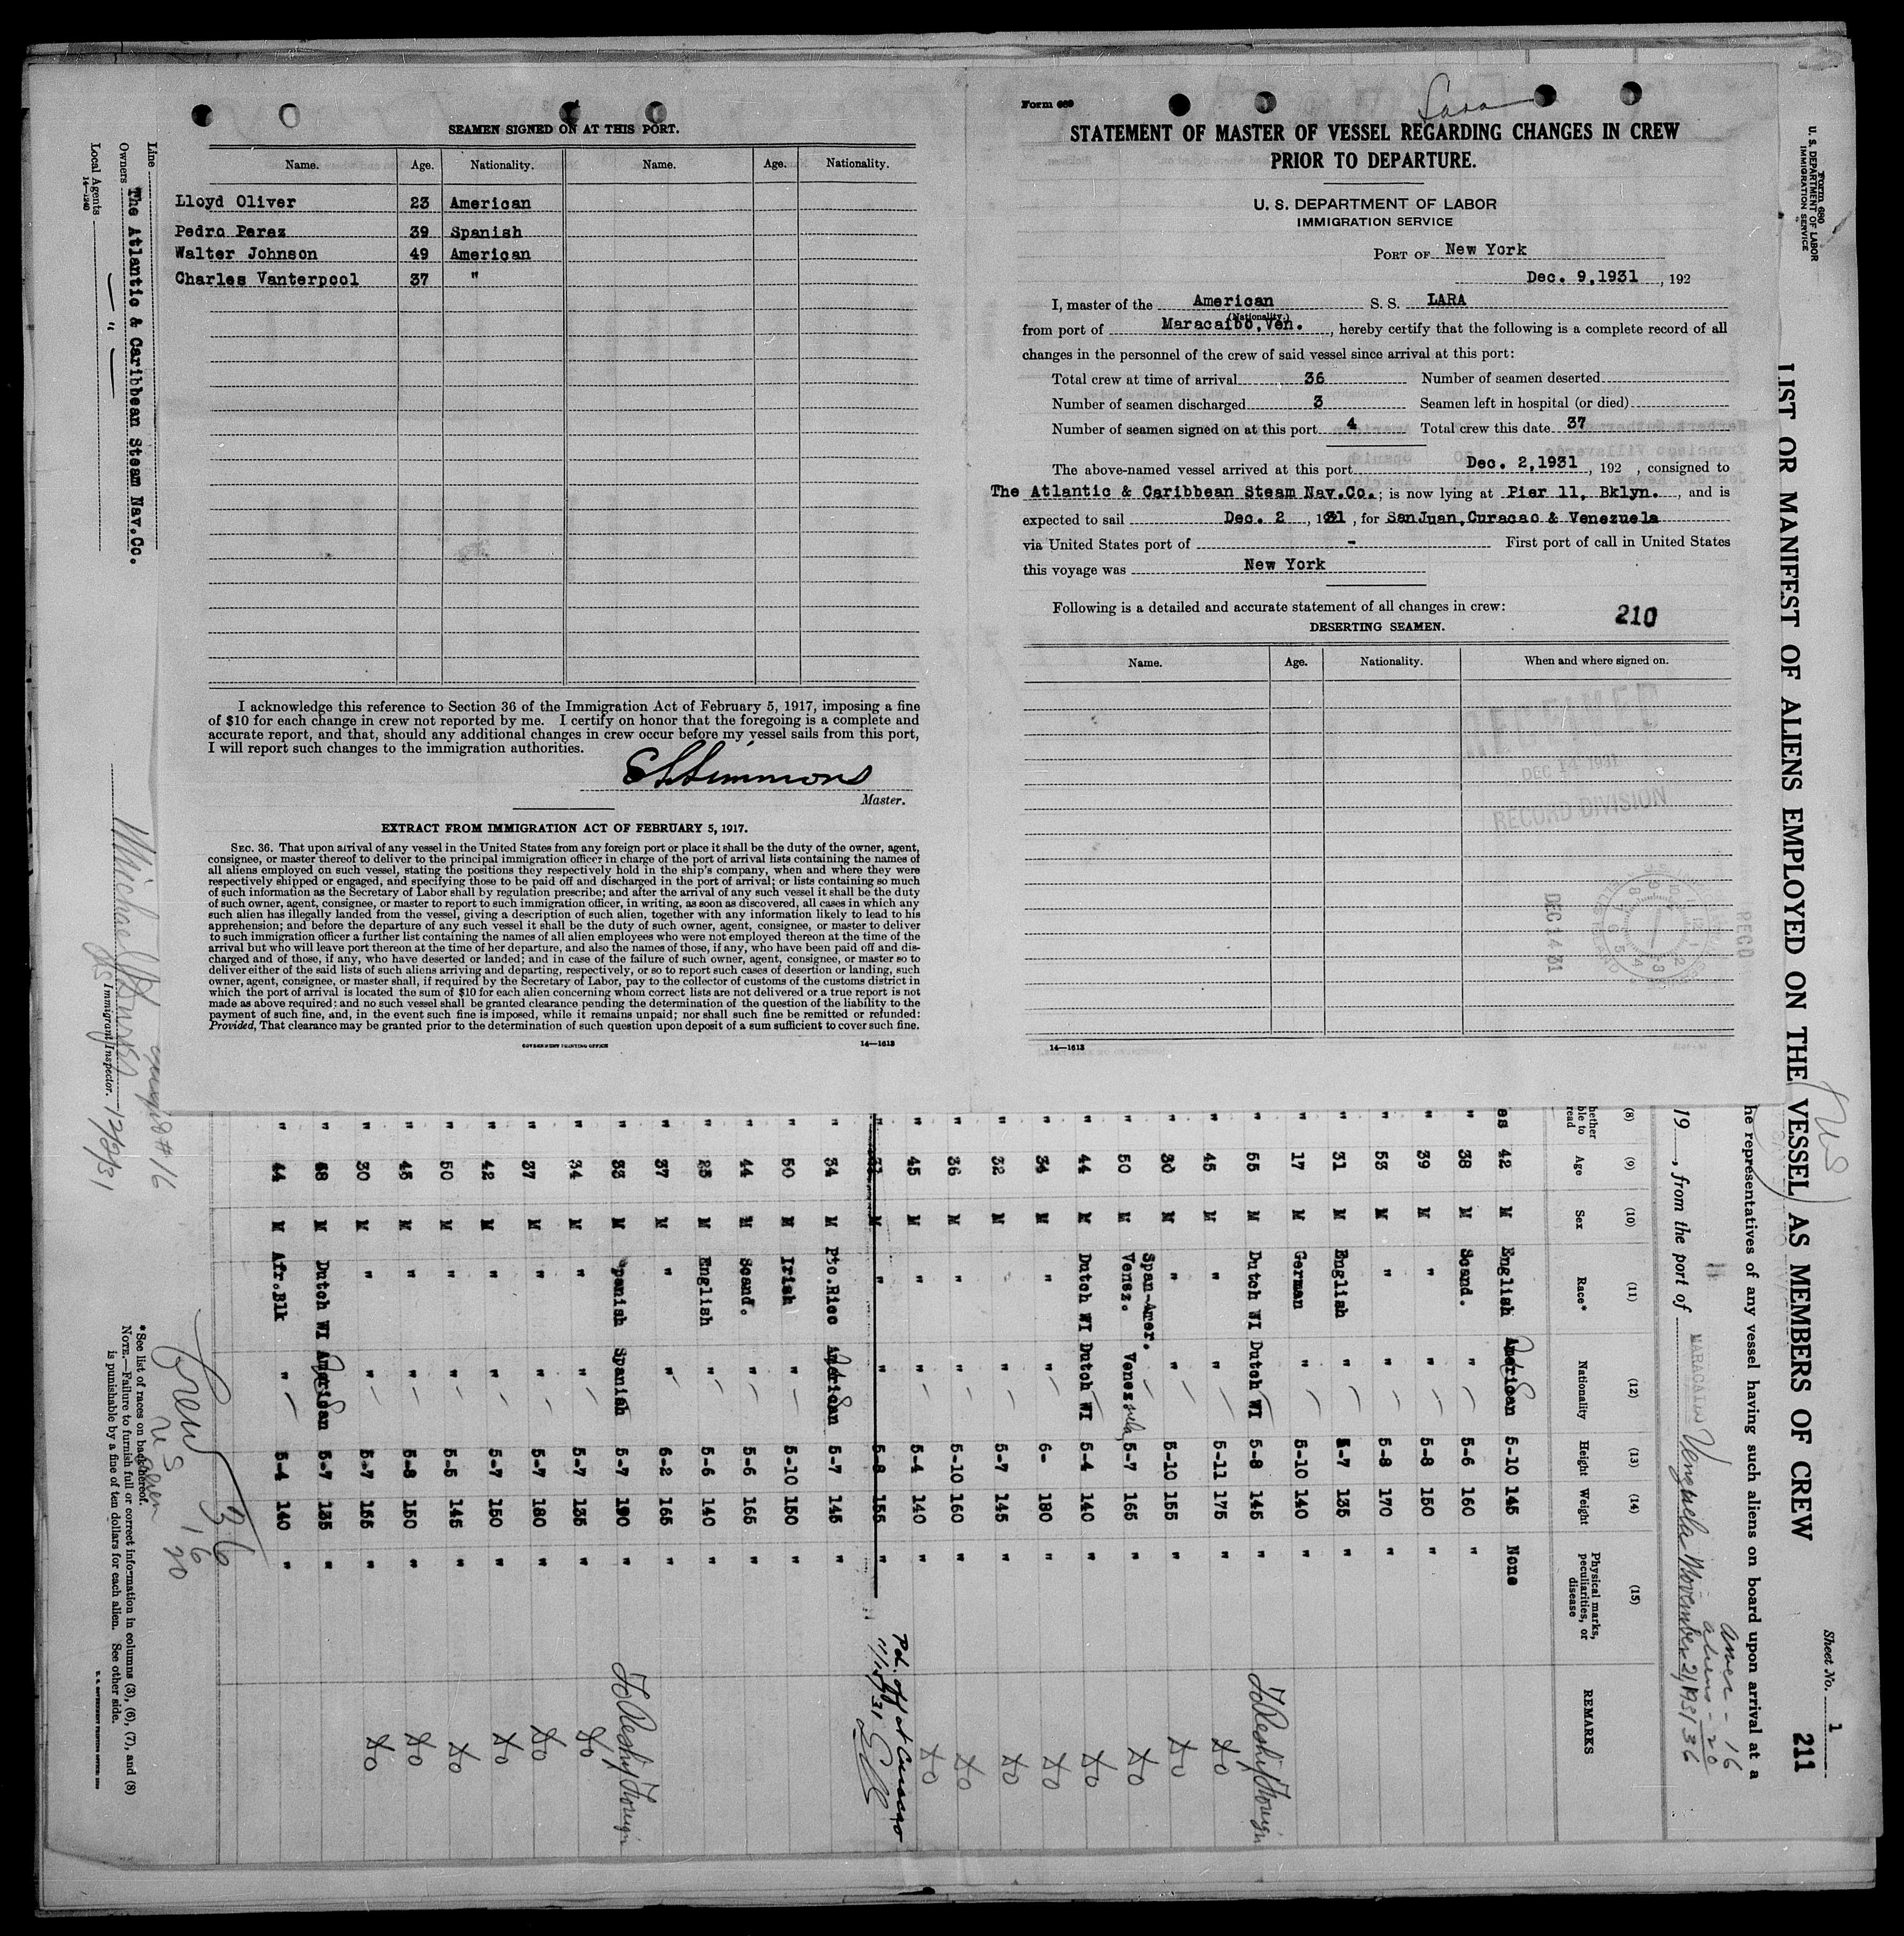 SEAMEN SIGNED ON AT THIS PORT.
Name. Age. Nationality. Name. Age. Nationality.
Lloyd Oliver 23 American
Pedro Perez 39 Spanish
Walter Johnson 49 American
Charles Vanterpool 37 "
I acknowledge this reference to Section 36 of the Immigration Act of February 5, 1917, imposing a fine
of $10 for each change in crew not reported by me. I certify on honor that the foregoing is a complete and
accurate report, and that, should any additional changes in crew occur before my vessel sails from this port,
I will report such changes to the immigration authorities.
Simmons
Master.
EXTRACT FROM IMMIGRATION ACT OF FEBRUARY 5, 1917.
SEC. 36. That upon arrival of any vessel in the United States from any foreign port or place it shall be the duty of the owner, agent,
consignee, or master thereof to deliver to the principal immigration officer in charge of the port of arrival lists containing the names of
all aliens employed on such vessel, stating the positions they respectively hold in the ship's company, when and where they were
respectively shipped or engaged, and specifying those to be paid off and discharged in the port of arrival; or lists containing so much
of such information as the Secretary of Labor shall by regulation prescribe; and after the arrival of any such vessel it shall be the duty
of such owner, agent, consignee, or master to report to such immigration officer, in writing, as soon as discovered, all cases in which any
such alien has illegally landed from the vessel, giving a description of such alien, together with any information likely to lead to his
apprehension; and before the departure of any such vessel it shall be the duty of such owner, agent, consignee, or master to deliver
to such immigration officer a further list containing the names of all alien employees who were not employed thereon at the time of the
arrival but who will leave port thereon at the time of her departure, and also the names of those, if any, who have been paid off and dis-
charged and of those, if any, who have deserted or landed; and in case of the failure of such owner, agent, consignee, or master so to
deliver either of the said lists of such aliens arriving and departing, respectively, or so to report such cases of desertion or landing, such
owner, agent, consignee, or master shall, if required by the Secretary of Labor, pay to the collector of customs of the customs district in
which the port of arrival is located the sum of $10 for each alien concerning whom correct lists are not delivered or a true report is not
made as above required; and no such vessel shall be granted clearance pending the determination of the question of the liability to the
payment of such fine, and, in the event such fine is imposed, while it remains unpaid; nor shall such fine be remitted or refunded:
Provided, That clearance may be granted prior to the determination of such question upon deposit of a sum sufficient to cover such fine.
GOVERNMENT PRINTING OFFICE 14—1613
Form 689
Lara
STATEMENT OF MASTER OF VESSEL REGARDING CHANGES IN CREW
PRIOR TO DEPARTURE.
U. S. DEPARTMENT OF LABOR
IMMIGRATION SERVICE
PORT OF New York
Dec. 9,1931, 192
I, master of the American S. S. LARA
(Nationality.)
from port of Maracaibo,Ven., hereby certify that the following is a complete record of all
changes in the personnel of the crew of said vessel since arrival at this port:
Total crew at time of arrival 36 Number of seamen deserted
Number of seamen discharged 3 Seamen left in hospital (or died)
Number of seamen signed on at this port 4 Total crew this date 37
The above-named vessel arrived at this port Dec. 2,1931, 192 , consigned to
The Atlantic & Caribbean Steam Nav.Co.; is now lying at Pier 11, Bklyn., and is
expected to sail Dec. 2, 1931, for SanJuan,Curacao & Venezuela
via United States port of - First port of call in United States
this voyage was New York
Following is a detailed and accurate statement of all changes in crew:
210
DESERTING SEAMEN.
Name. Age. Nationality. When and where signed on.
RECEIVED
DEC 14 1931
RECORD DIVISION
DEC 14 31
REC'D
14—1613
Form 680
U. S. DEPARTMENT OF LABOR
IMMIGRATION SERVICE
LIST OR MANIFEST OF ALIENS EMPLOYED ON THE VESSEL AS MEMBERS OF CREW
US
Sheet No. 1
211
he representatives of any vessel having such aliens on board upon arrival at a
Amer - 16
aliens - 20
36
19 , from the port of MARACAIBO Venezuela November 21 1931
(8) (9) (10) (11) (12) (13) (14) (15)
hether ble to read Age Sex Race* Nationality Height Weight Physical marks, peculiarities, or disease REMARKS
es 42 M English American 5-10 145 None
" 38 M Scand. " 5-6 160 "
" 39 M " " 5-8 150 "
" 53 M " " 5-8 170 "
" 31 M English " 5-7 135 "
" 17 M German " 5-10 140 "
" 55 M Dutch WI Dutch WI 5-8 145 " To Reship Foreign
" 45 M " " 5-11 175 " do
" 30 M " " 5-10 155 " do
" 50 M Span-Amer. Venez. Venezuela 5-7 165 " do
" 44 M Dutch WI Dutch WI 5-4 140 " do
" 34 M " " 6- 180 " do
" 32 M " " 5-7 145 " do
" 36 M " " 5-10 160 " do
" 45 M " " 5-4 140 " do
" M " " 5-8 155 " Pd. off at Curacao 11/15/31
" 34 M Pto.Rico American 5-7 145 "
" 50 M Irish " 5-10 150 "
" 44 M Scand. " 5-6 165 "
" 25 M English " 5-6 140 "
" 37 M " " 6-2 165 "
" 33 M Spanish Spanish 5-7 190 " To Reship Foreign
" 34 M " " 5-7 135 " do
" 37 M " " 5-7 180 " do
" 42 M " " 5-7 150 " do
" 50 M " " 5-5 145 " do
" 45 M " " 5-8 150 " do
" 30 M " " 5-7 155 " do
" M Dutch WI American 5-7 135 "
" 44 M Afr.Blk " 5-4 140 "
Crew 36
US 16
Alien 20
Line
Owners The Atlantic & Caribbean Steam Nav.Co.
Local Agents — " —
14—1240
Immigrant Inspector.
12/2/31
#16
*See list of races on back hereof.
NOTE.—Failure to furnish full or correct information in columns (3), (6), (7), and (8)
is punishable by a fine of ten dollars for each alien. See other side.
U. S. GOVERNMENT PRINTING OFFICE